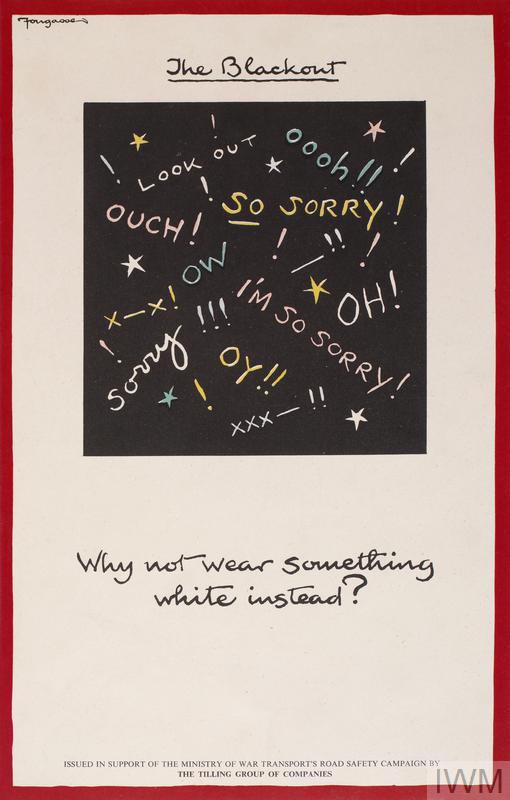 Fougasse
The Blackout
LOOK OUT !
Ooooh!!
OUCH!
SO SORRY!
OW
— !!
x—x!
!!!
I'M SO SORRY!
OH!
Sorry
OY!!
xxx— !!
Why not wear something
white instead?
ISSUED IN SUPPORT OF THE MINISTRY OF WAR TRANSPORT'S ROAD SAFETY CAMPAIGN BY
THE TILLING GROUP OF COMPANIES
IWM